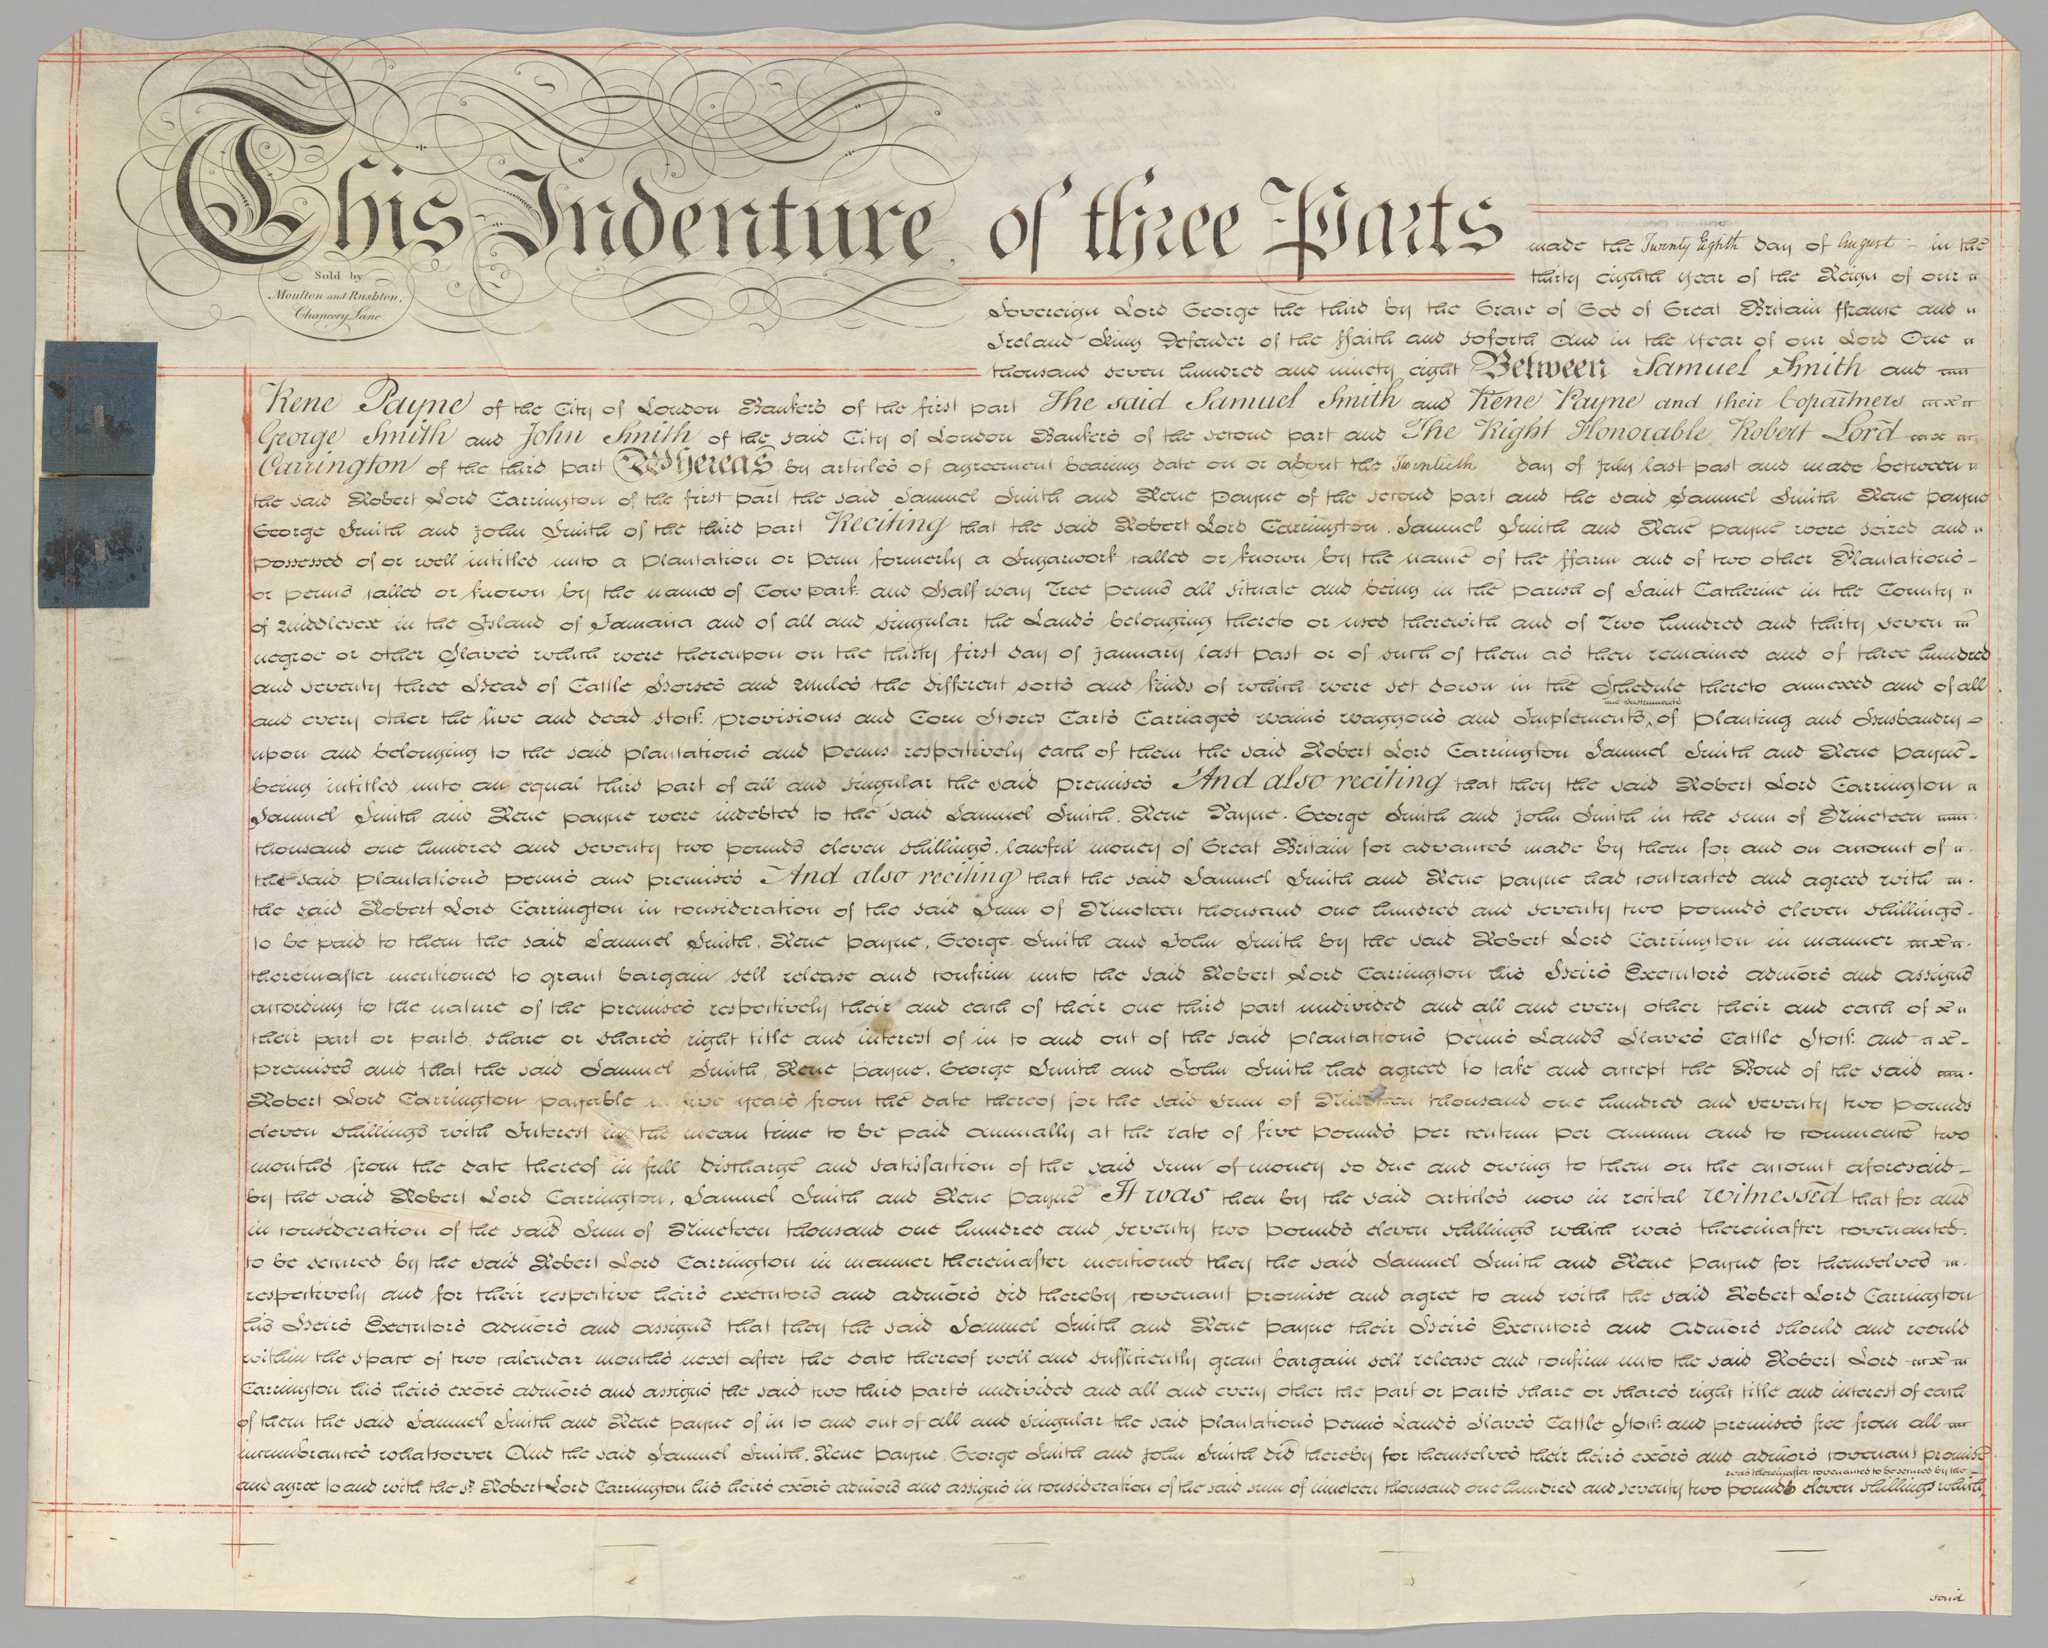 This Indenture of three Parts
Sold by
Moulton and Rushton,
Chancery Lane
made the Twenty Eighth day of August in the
thirty eighth year of the Reign of our
Sovereign Lord George the third by the Grace of God of Great Britain ffrance and
Ireland King Defender of the ffaith and soforth And in the Year of our Lord One
thousand seven hundred and ninety eight Between Samuel Smith and
Rene Payne of the City of London Bankers of the first part The said Samuel Smith and Rene Payne and their Copartners
George Smith and John Smith of the said City of London Bankers of the second part and The Right Honorable Robert Lord
Carrington of the third part Whereas by articles of agreement bearing date on or about the Twentieth day of July last past and made between
the said Robert Lord Carrington of the first part the said Samuel Smith and Rene Payne of the second part and the said Samuel Smith Rene payne
George Smith and John Smith of the third part Reciting that the said Robert Lord Carrington, Samuel Smith and Rene payne were seized and
possessed of or well intitled unto a plantation or Penn formerly a Sugarwork called or known by the name of the ffarm and of two other Plantations
or penns called or known by the names of Cow park and Half way Tree penns all situate and being in the parish of Saint Catherine in the County
of Middlesex in the Island of Jamaica and of all and singular the Lands belonging thereto or used therewith and of Two hundred and thirty seven
negroe or other Slaves which were thereupon on the thirty first day of January last past or of such of them as then remained and of three hundred
and seventy three Head of Cattle Horses and Mules the different sorts and kinds of which were set down in the Schedule thereto annexed and of all
and every other the live and dead stock provisions and Corn Stores Carts Carriages wains waggons and Implements and Instruments of planting and Husbandry
upon and belonging to the said plantations and Penns respectively each of them the said Robert Lord Carrington Samuel Smith and Rene payne
being intitled unto an equal third part of all and singular the said premises And also reciting that they the said Robert Lord Carrington
Samuel Smith and Rene payne were indebted to the said Samuel Smith, Rene Payne, George Smith and John Smith in the sum of Nineteen
thousand one hundred and seventy two pounds eleven shillings, lawful money of Great Britain for advances made by them for and on account of
the said plantations penns and premises And also reciting that the said Samuel Smith and Rene payne had contracted and agreed with
the said Robert Lord Carrington in consideration of the said Sum of Nineteen thousand one hundred and seventy two pounds eleven shillings
to be paid to them the said Samuel Smith, Rene payne, George Smith and John Smith by the said Robert Lord Carrington in manner
thereinafter mentioned to grant bargain sell release and confirm unto the said Robert Lord Carrington his Heirs Executors admors and assigns
according to the nature of the premises respectively their and each of their one third part undivided and all and every other their and each of
their part or parts share or shares right title and interest of in to and out of the said plantations penns Lands Slaves Cattle Stock and
premises and that the said Samuel Smith, Rene payne, George Smith and John Smith had agreed to take and accept the Bond of the said
Robert Lord Carrington payable in five years from the date thereof for the said sum of Nineteen thousand one hundred and seventy two pounds
eleven shillings with Interest in the mean time to be paid annually at the rate of five pounds per centum per annum and to commence two
months from the date thereof in full discharge and satisfaction of the said sum of money so due and owing to them on the account aforesaid
by the said Robert Lord Carrington, Samuel Smith and Rene payne It was then by the said articles now in recital witnessed that for and
in consideration of the said Sum of Nineteen thousand one hundred and seventy two pounds eleven shillings which was thereinafter covenanted
to be secured by the said Robert Lord Carrington in manner thereinafter mentioned they the said Samuel Smith and Rene payne for themselves
respectively and for their respective heirs executors and admors did thereby covenant promise and agree to and with the said Robert Lord Carrington
his Heirs Executors admors and assigns that they the said Samuel Smith and Rene payne their Heirs Executors and Admors should and would
within the space of two calendar months next after the date thereof well and sufficiently grant bargain sell release and confirm unto the said Robert Lord
Carrington his heirs exors admors and assigns the said two third parts undivided and all and every other the part or parts share or shares right title and interest of each
of them the said Samuel Smith and Rene payne of in to and out of all and singular the said plantations penns Lands Slaves Cattle Stock and premises free from all
incumbrances whatsoever And the said Samuel Smith, Rene payne, George Smith and John Smith did thereby for themselves their heirs exors and admors covenant promise
and agree to and with the sd. Robert Lord Carrington his heirs exors admors and assigns in consideration of the said sum of nineteen thousand one hundred and seventy two pounds eleven shillings which
was thereinafter covenanted to be secured by the
said